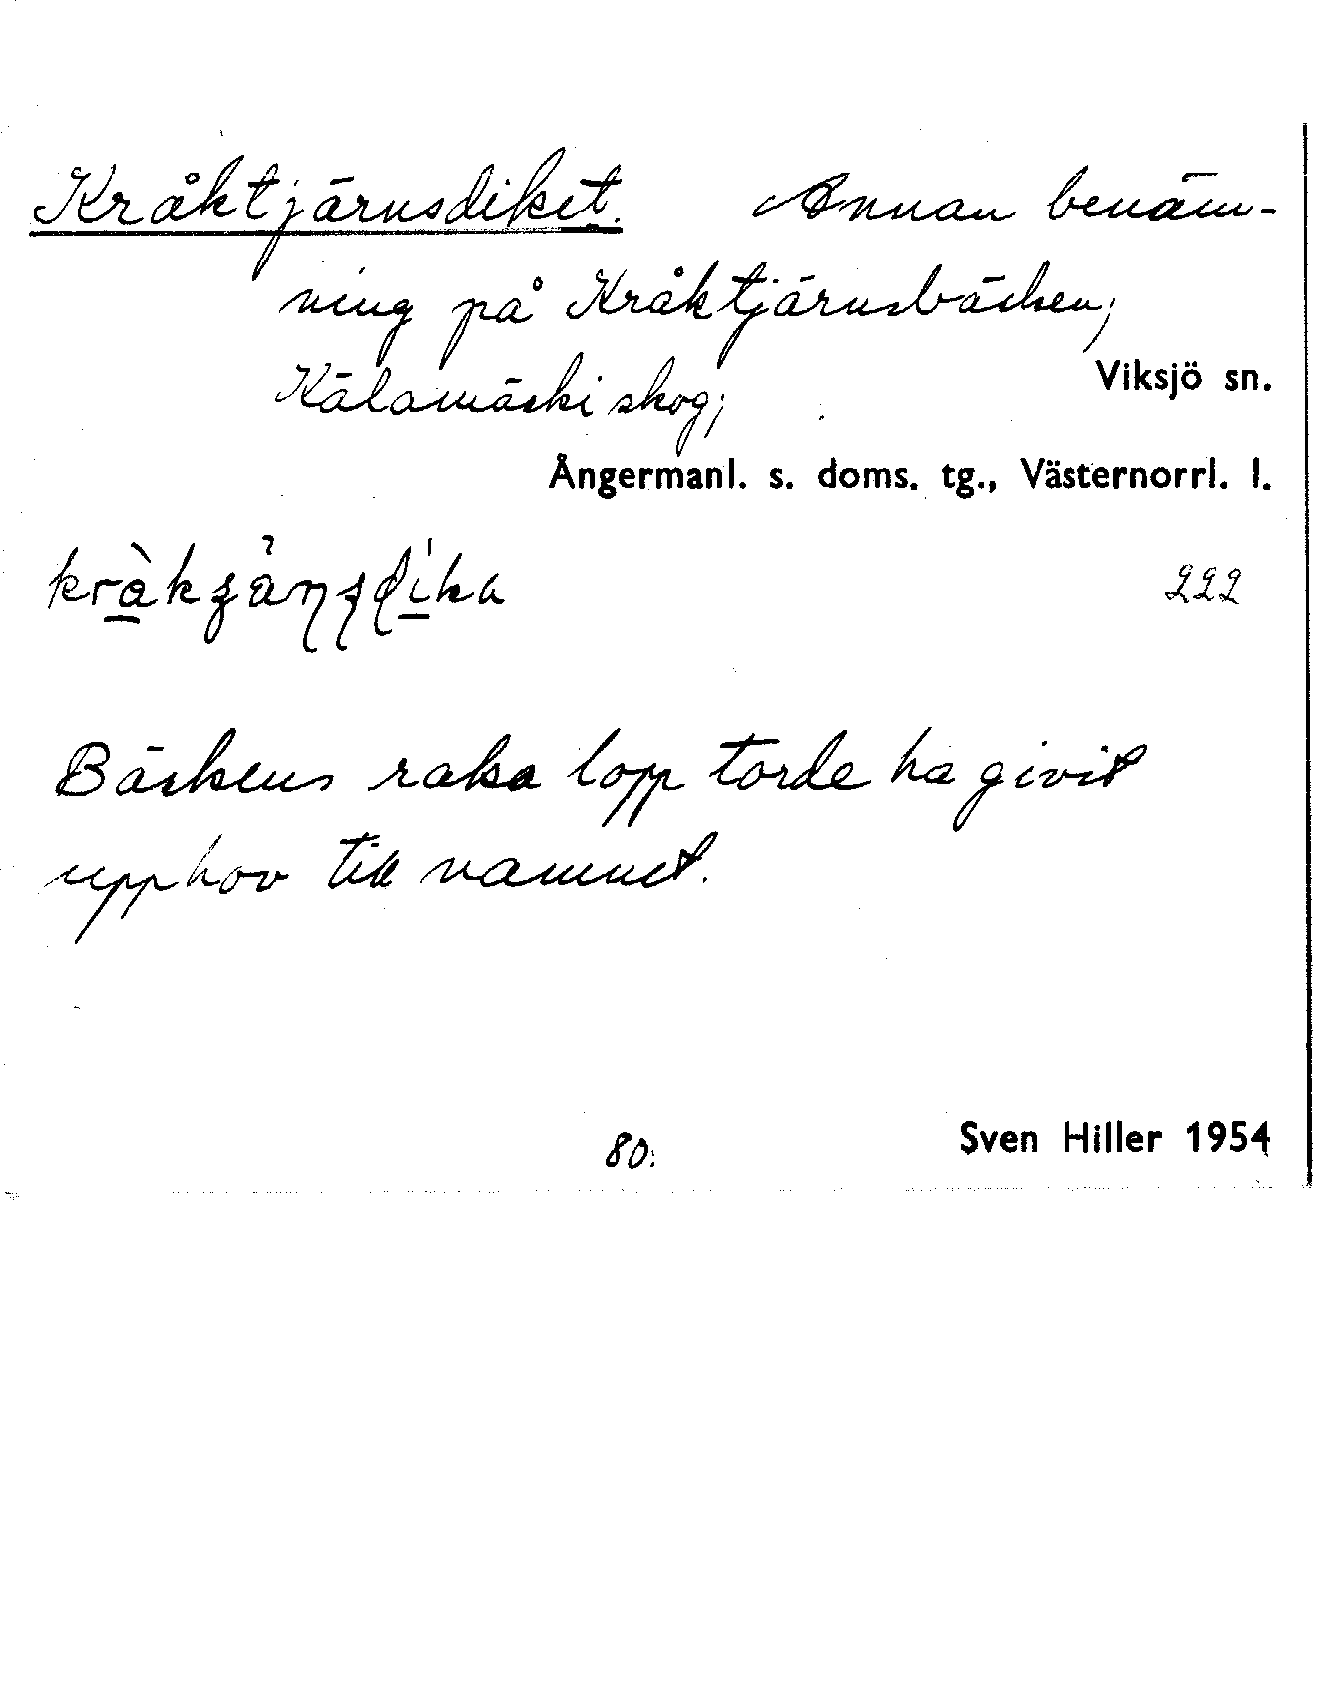 Kråktjärnsdiket. Annan benäm-
ning på Kråktjärnsbäcken;
Kälamäski skog;
Viksjö sn.
Ångermanl. s. doms. tg., Västernorrl. l.
222
Bäckens raka lopp torde ha givit
upphov till namnet.
80.
Sven Hiller 1954